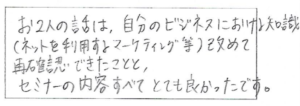 お2人の話は、自分のビジネスにおける知識
(ネットを利用するマーケティング等)改めて
再確認できたことと、
セミナーの内容すべてとても良かったです。